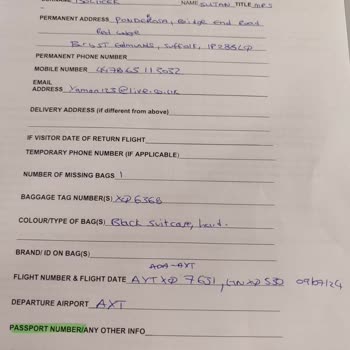 NAME SULTAN TITLE MRS
PERMANENT ADDRESS PONDEROSA, Bridge End Road
Red Lodge
Bury St Edmunds, Suffolk, IP28 8LQ
PERMANENT PHONE NUMBER
MOBILE NUMBER
EMAIL
ADDRESS
DELIVERY ADDRESS (if different from above)
IF VISITOR DATE OF RETURN FLIGHT
TEMPORARY PHONE NUMBER (IF APPLICABLE)
NUMBER OF MISSING BAGS 1
BAGGAGE TAG NUMBER(S) XQ 6368
COLOUR/TYPE OF BAG(S) Black suitcase, hard.
BRAND/ ID ON BAG(S)
ADA-AYT
FLIGHT NUMBER & FLIGHT DATE AYT XQ 7651, XQ 530 09/07/24
DEPARTURE AIRPORT AYT
PASSPORT NUMBER/ANY OTHER INFO